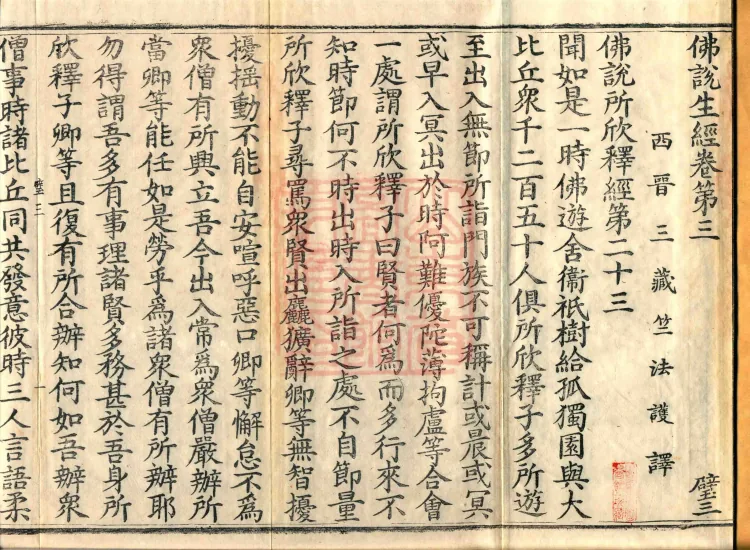 佛說生經卷第三
璧三
西晉三藏竺法護譯
佛說所欣釋經第二十三
聞如是一時佛遊舍衞祇樹給孤獨園與大
比丘衆千二百五十人俱所欣釋子多所遊
至出入無節所詣門族不可稱計或晨或冥
或早入冥出於時阿難優陀薄拘盧等合會
一處謂所欣釋子曰賢者何爲而多行來不
知時節何不時出時入所詣之處不自節量
所欣釋子尋罵衆賢出麤獷辭卿等無智擾
擾揺動不能自安喧呼惡口卿等懈怠不爲
衆僧有所興立吾今出入常爲衆僧嚴辦所
當卿等能任如是勞乎爲諸衆僧有所辦耶
勿得謂吾多有事理諸賢多務甚於吾身所
欣釋子卿等且復有所合辦知何如吾辦衆
璧三
一
僧事時諸比丘同共發意彼時三人言語柔